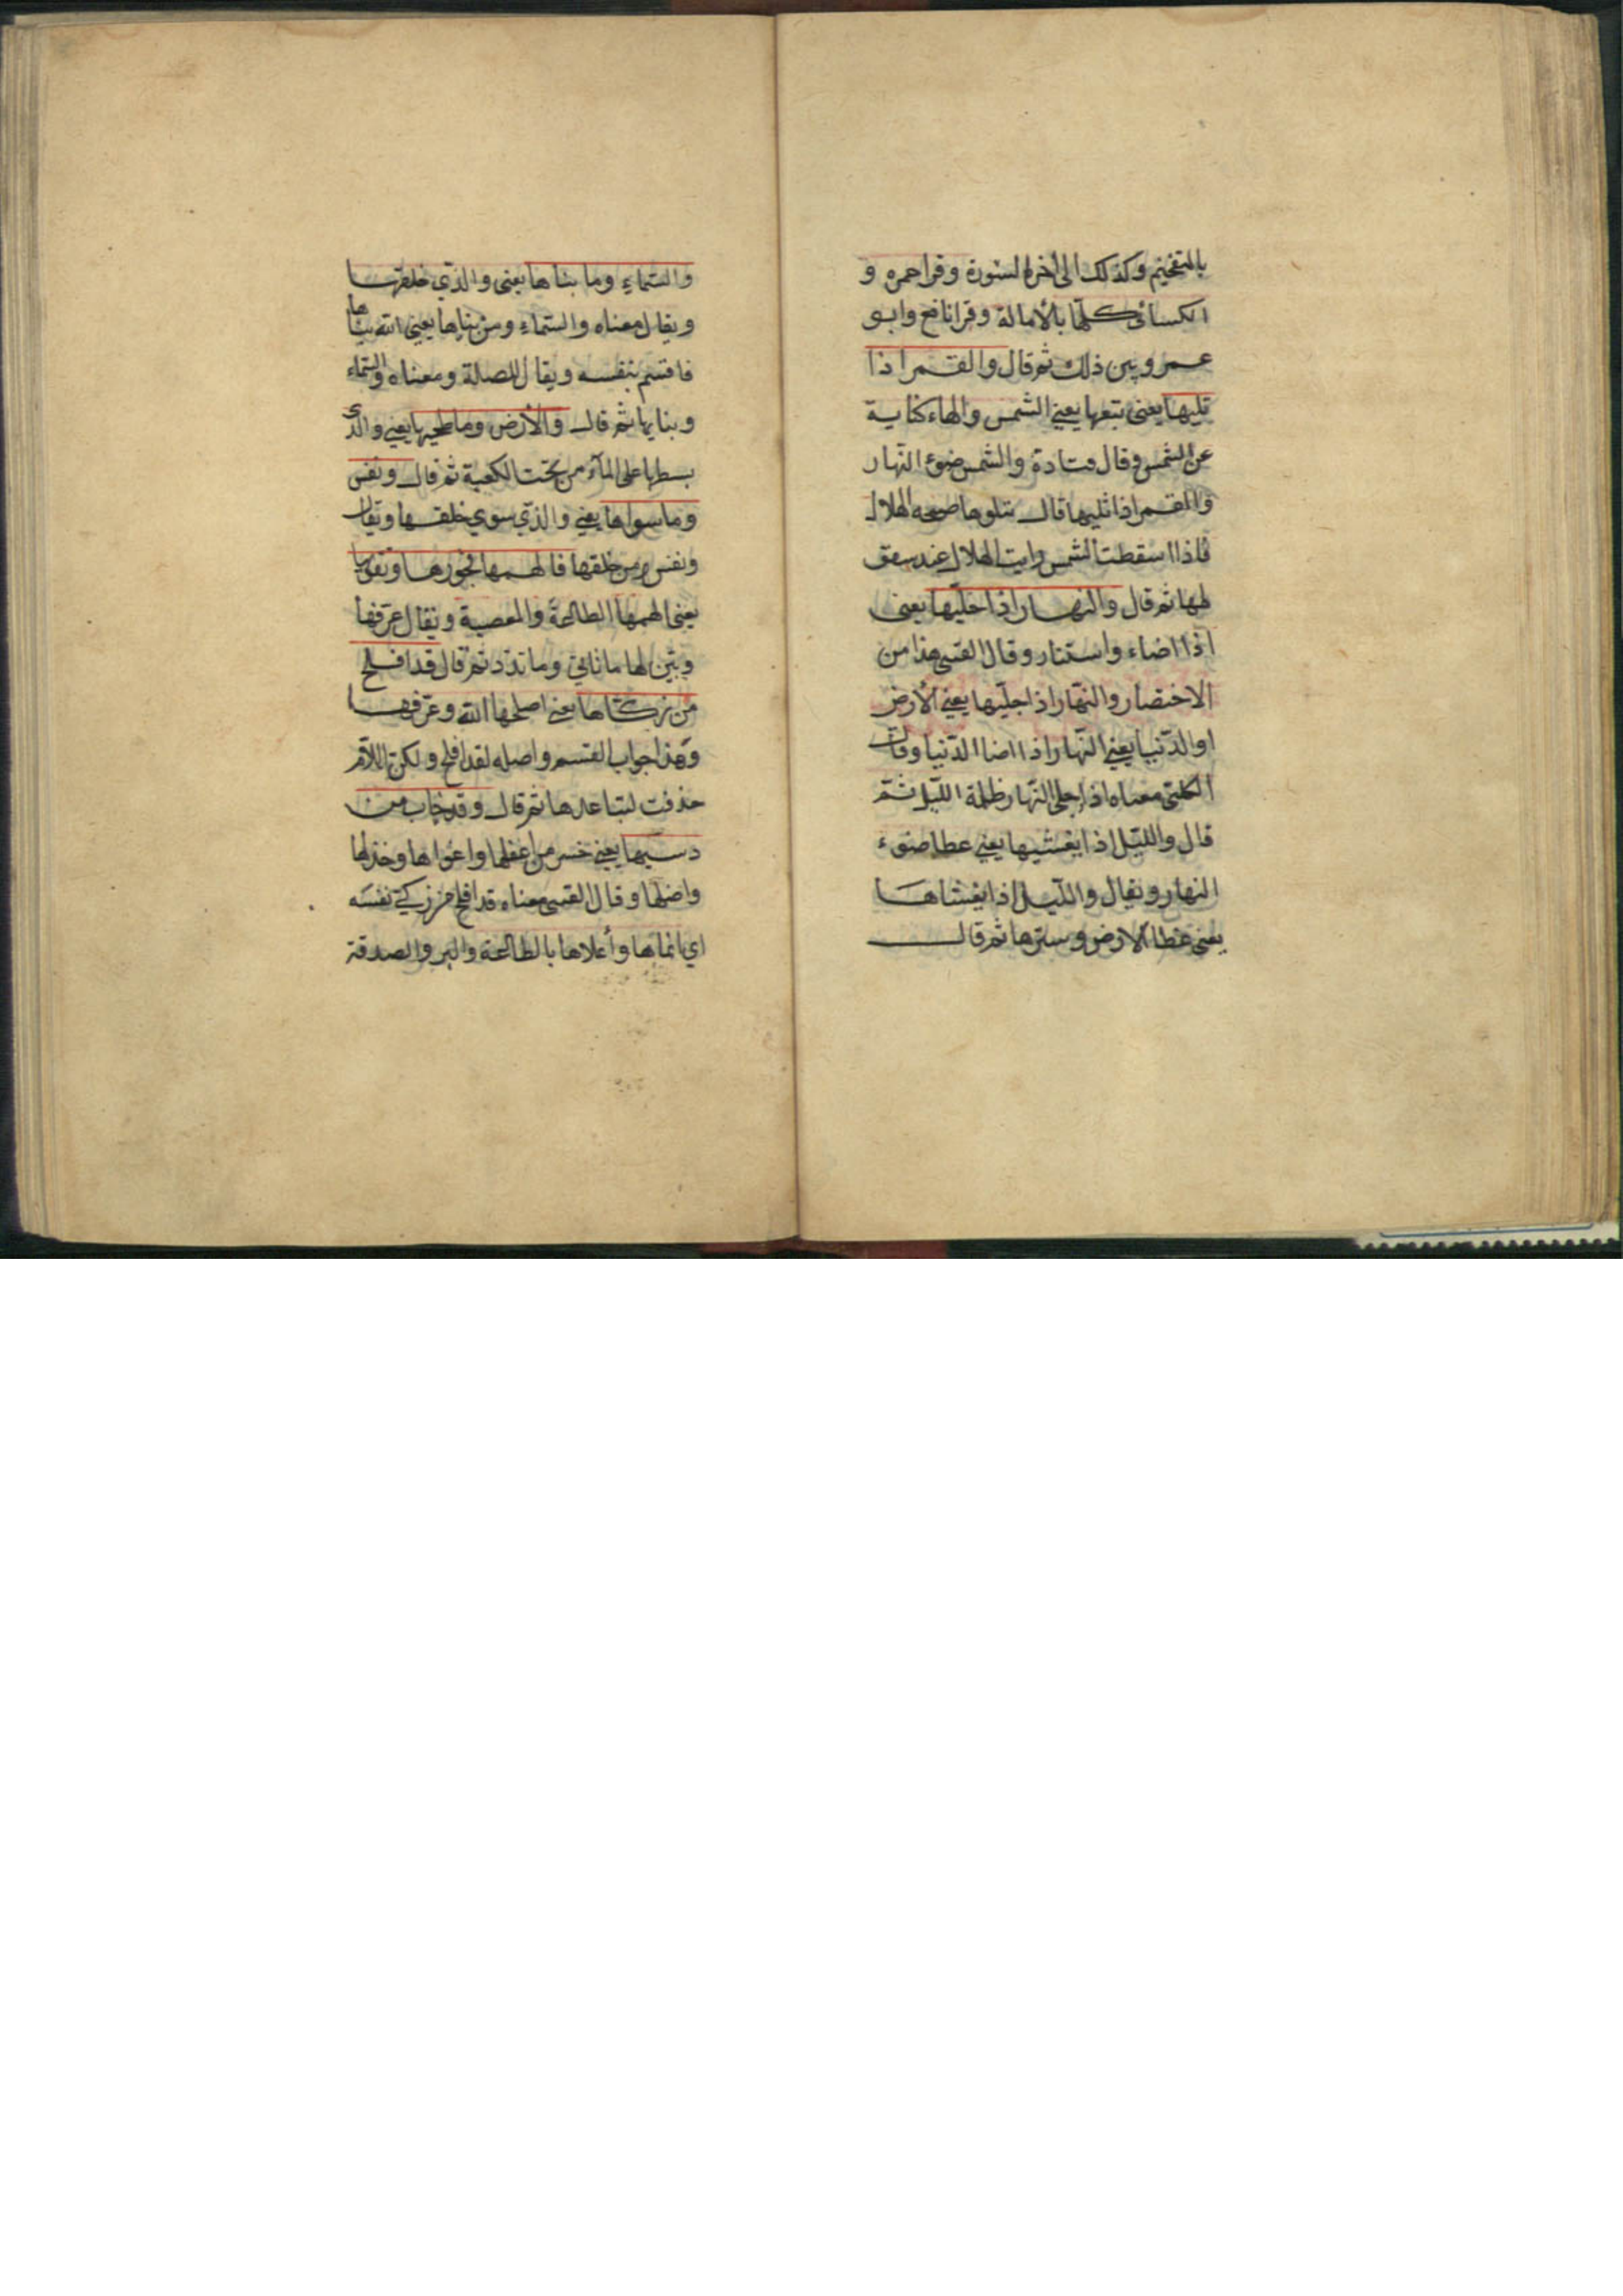 بالتفخيم وكذلك الى اخر السورة وقرا حمزه و
الكسائى كلها بالأمالة وقرا نافع وابو
عمرو بين ذلك ثم قال والقمر اذا
تليها يعنى تبعها يعني الشمس والهاء كناية
عن الشمس وقال قتادة والشمس ضوء النهار
والقمر اذا تليها قال يتلوها صبيحه الهلال
فاذا اسقطت الشمس رايت الهلال عند سقو
لها ثم قال والنهار اذا جليها يعنى
اذا اضاء واستنار وقال القتبى هذا من
الاختصار والنهار اذا جليها يعني الأرض
او الدنيا يعني النهار اذا اضا الدنيا وقال
الكلبى معناه اذا جلى النهار ظلمة الليل ثم
قال والليل اذا يغشيها يعني غطا ضوء
النهار ويقال والليل اذا يغشاها
يعنى غطا الارض وسترها ثم قال
والسماء وما بناها يعنى والذي خلقها
ويقال معناه والسماء ومن بناها يعني الله بناها
فاقسم بنفسه ويقال للصلة ومعناه والسماء
وبنايها ثم قال والأرض وما طحيها يعني والذى
بسطها على الماء من تحت الكعبة ثم قال ونفس
وما سواها يعني والذي سوي خلقها ويقال
ونفس ومن خلقها فالهمها فجورها وتقويها
يعنى الهمها الطاعة والمعصية ويقال عرفها
وبين لها ما تاتي وما تذر ثم قال قد افلح
من زكاها يعنى اصلحها الله وعرفها
وهذا جواب القسم واصله لقد افلح ولكن اللام
حذفت لتباعدها ثم قال وقد خاب من
دسيها يعني خسر من اغفلها واغواها وخذلها
واضلها وقال القتبى معناه قد افلح من زكي نفسه
اي انماها وأعلاها بالطاعة والبر والصدقة